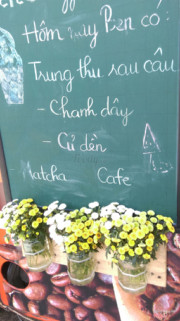 Hôm nay Pen có:
Trung thu sau câu
- Chanh dây
- Củ dền
Matcha Cafe